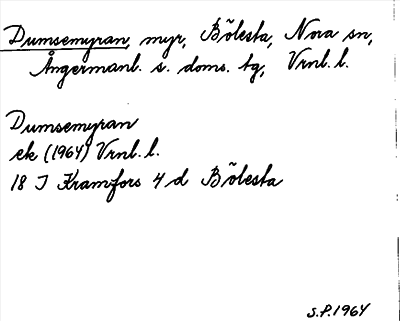 Dumsemyran, myr, Bölesta, Nora sn,
Ångermanl. s. doms. tg, Vrnl. l.
Dumsemyran
ek (1964) Vrnl. l.
18 I Kramfors 4 d Bölesta
S.P. 1964